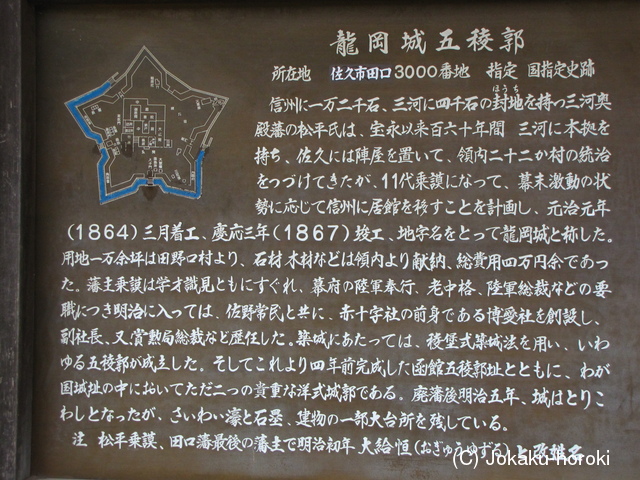 龍岡城五稜郭
所在地 佐久市田口3000番地 指定 国指定史跡
信州に一万二千石、三河に四千石の封地を持つ三河奥
ほうち
殿藩の松平氏は、宝永以来百六十年間 三河に本拠を
持ち、佐久には陣屋を置いて、領内二十二か村の統治
をつづけてきたが、11代乗謨になって、幕末激動の状
勢に応じて信州に居館を移すことを計画し、元治元年
(1864)三月着工、慶応三年(1867)竣工、地字名をとって龍岡城と称した。
用地一万余坪は田野口村より、石材木材などは領内より献納、総費用四万円余であっ
た。藩主乗謨は学才識見ともにすぐれ、幕府の陸軍奉行、老中格、陸軍総裁などの要
職につき明治に入っては、佐野常民と共に、赤十字社の前身である博愛社を創設し、
副社長、又賞勲局総裁など歴任した。築城にあたっては、稜堡式築城法を用い、いわ
ゆる五稜郭が成立した。そしてこれより四年前完成した函館五稜郭址とともに、わが
国城址の中においてただ二つの貴重な洋式城郭である。廃藩後明治五年、城はとりこ
わしとなったが、さいわい濠と石塁、建物の一部大台所を残している。
注 松平乗謨、田口藩最後の藩主で明治初年、大給恒(おぎゅうゆずる)と改姓名
(C) Jokaku-horoki